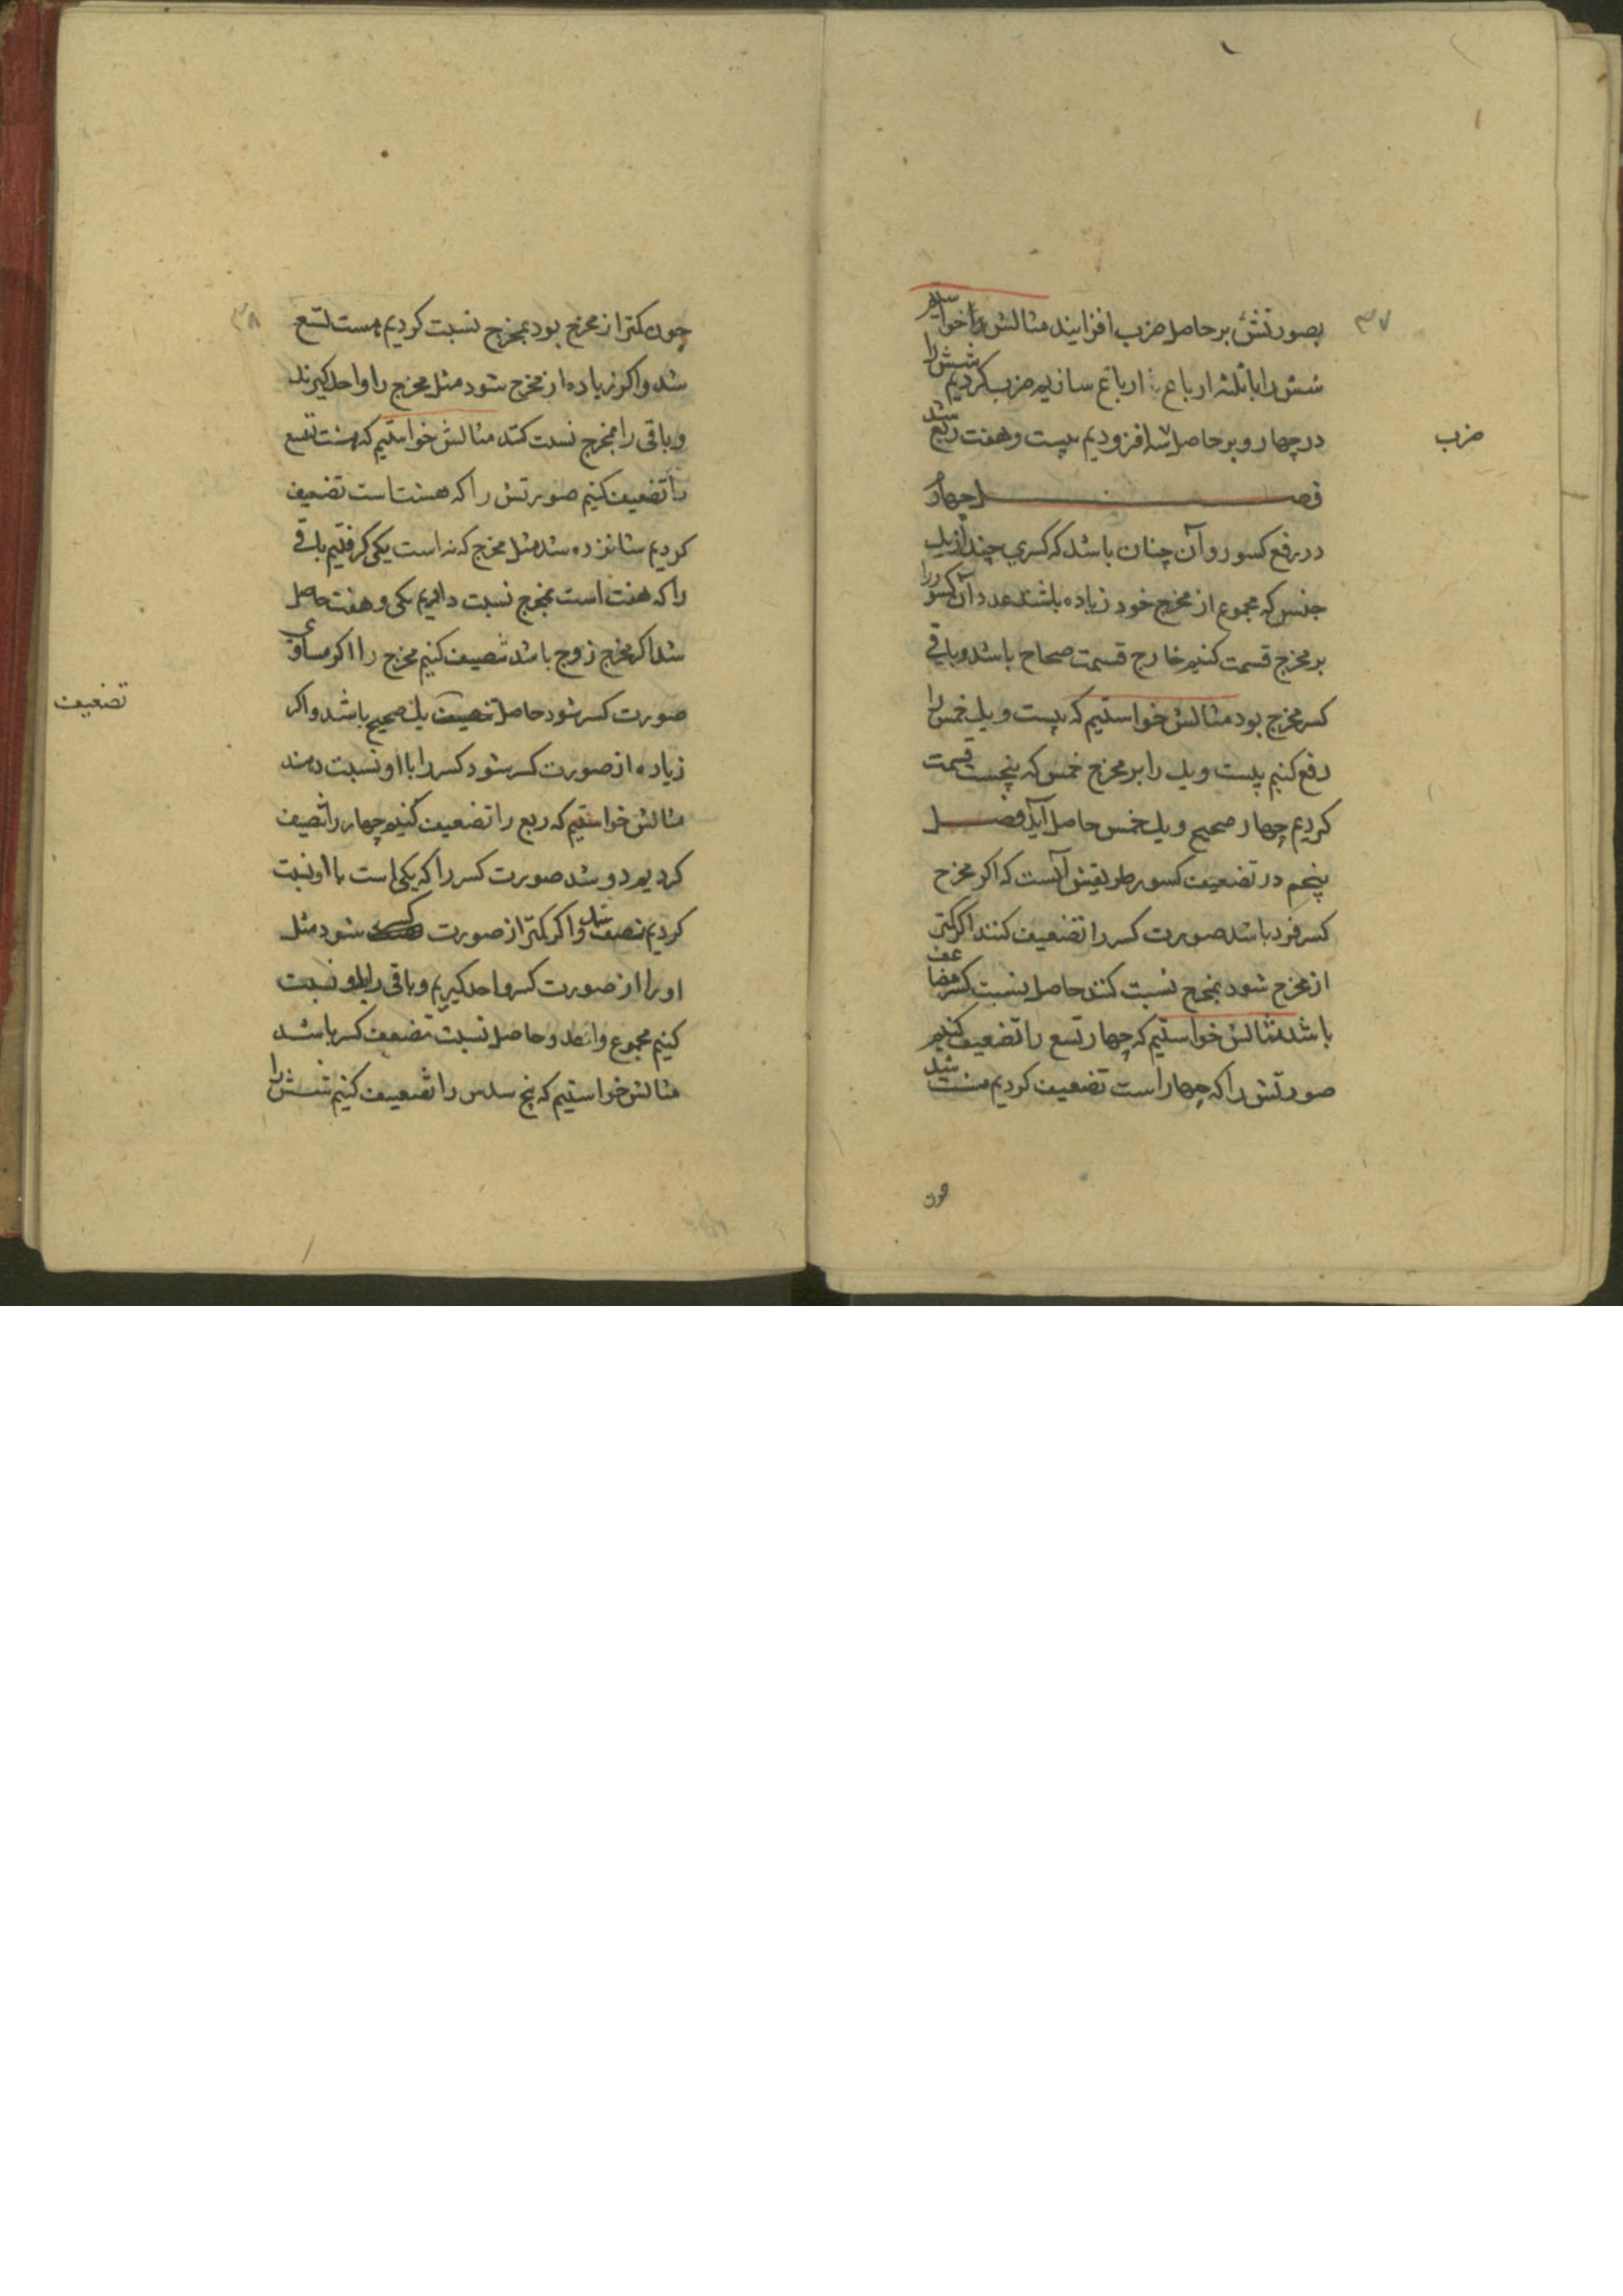 ۳۷
بصورتش بر حاصل ضرب افزایند مثالش خواستیم
شش را با ثلثه ارباع ارباع سازیم ضرب کردیم شش را
در چهار و بر حاصل سه افزودیم بیست و هفت ربع شد
ضرب
فصل چهارم
در رفع کسور و آن چنان باشد که کسری چند از یک
جنس که مجموع از مخرج خود زیاده باشند عدد آن کسور را
بر مخرج قسمت کنیم خارج قسمت صحاح باشد و باقی
کسر مخرج بود مثالش خواستیم که بیست و یک خمس را
رفع کنیم بیست و یک را بر مخرج خمس که پنجست قسمت
کردیم چهار صحیح و یک خمس حاصل آید فصل
پنجم در تضعیف کسور طریقش آنست که اکر مخرج
کسر فرد باشد صورت کسر را تضعیف کنند اکر کمتر
از مخرج شود بمخرج نسبت کنند حاصل نسبت کسر مضاعف
باشد مثالش خواستیم که چهار تسع را تضعیف کنیم
صورتش را که چهار است تضعیف کردیم هشت شد
چون
۳۸
چون کمتر از مخرج بود بمخرج نسبت کردیم هست تسع
شد و اکر زیاده از مخرج شود مثل مخرج را واحد کیرند
و باقی را بمخرج نسبت کنند مثالش خواستیم که هشت تسع
را تضعیف کنیم صورتش را که هشت است تضعیف
کردیم شانزده شد مثل مخرج که نه است یکی کرفتیم باقی
را که هفت است بمخرج نسبت دادیم یکی و هفت حاصل
شد اکر مخرج زوج باشد تنصیف کنیم مخرج را اکر مساوی
صورت کسر شود حاصل تضعیف یک صحیح باشد و اکر
تضعیف
زیاده از صورت کسر شود کسر را با او نسبت دهند
مثالش خواستیم که ربع را تضعیف کنیم چهار را تنصیف
کردیم دو شد صورت کسر را که یکی است با او نسبت
کردیم نصف شد و اکر کمتر از صورت کسر شود مثل
او را از صورت کسر واحد کیریم و باقی را باو نسبت
کنیم مجموع واحد و حاصل نسبت تضعیف کسر باشد
مثالش خواستیم که پنج سدس را تضعیف کنیم شش را